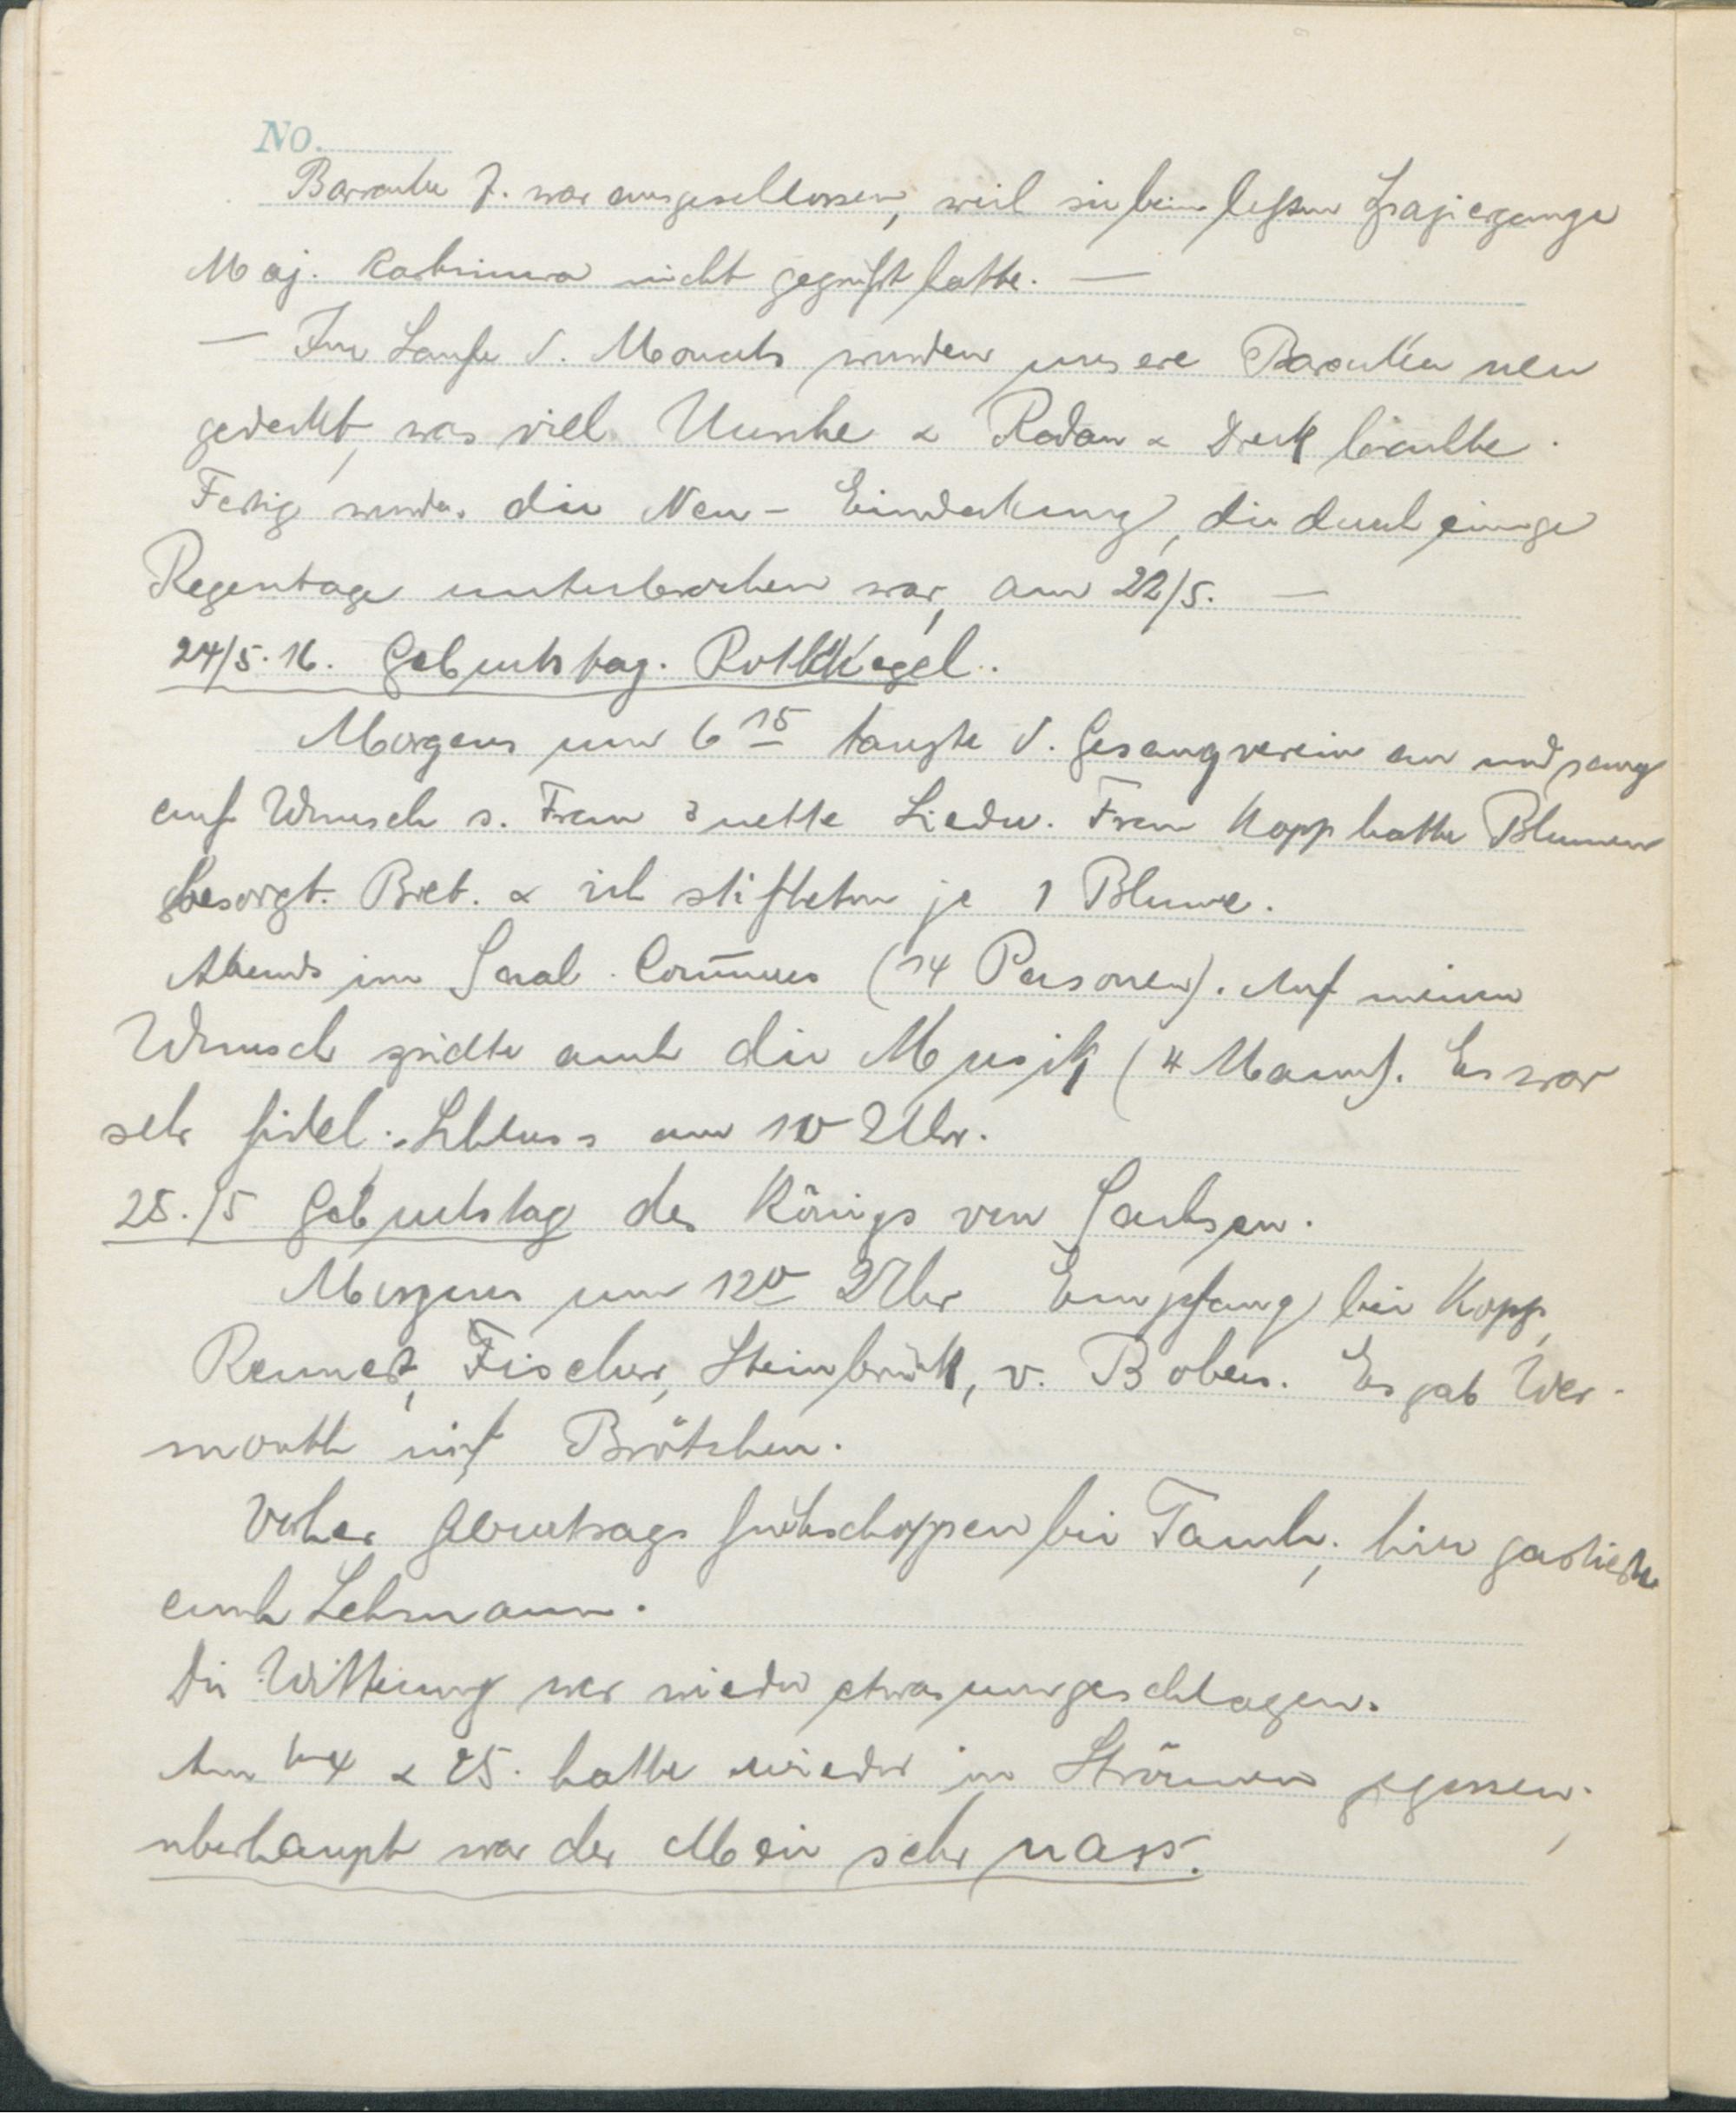 No.
Baracke 7. war ausgeschlossen, weil sie beim letzten Spaziergange
Maj. nicht gegrüßt hatte. —
— Im Laufe d. Monats wurden unsere Baracken neu
gedeckt, was viel Unruhe & Radau & Dreck brachte.
Fertig wurde die Neu-Eindeckung, die durch einige
Regentage unterbrochen war, am 22/5. —
24/5.16. Geburtstag. Rothkegel.
Morgens um 6 15 tanzte d. Gesangverein an und sang
auf Wunsch s. Frau 3 nette Lieder. Frau Kopp hatte Blumen
besorgt. Bret. & ich stifteten je 1 Blume.
Abends im Saal (14 Personen). Auf meinen
Wunsch spielte auch die Musik (4 Mann). Es war
sehr fidel. Schluss um 10 Uhr.
25./5 Geburtstag des Königs von Sachsen.
Morgens um 12 Uhr Empfang bei Kopp,
Fischer, Steinbrück, v. Bobers. Es gab Wer-
mouth mit Brötchen.
Vorher Geburtstags frühschoppen bei hier gastierte
auch Lehmann.
Die Witterung war wieder etwas umgeschlagen.
Am & 25. hatte wieder in Strömen gegossen;
überhaupt war der Mai sehr nass.